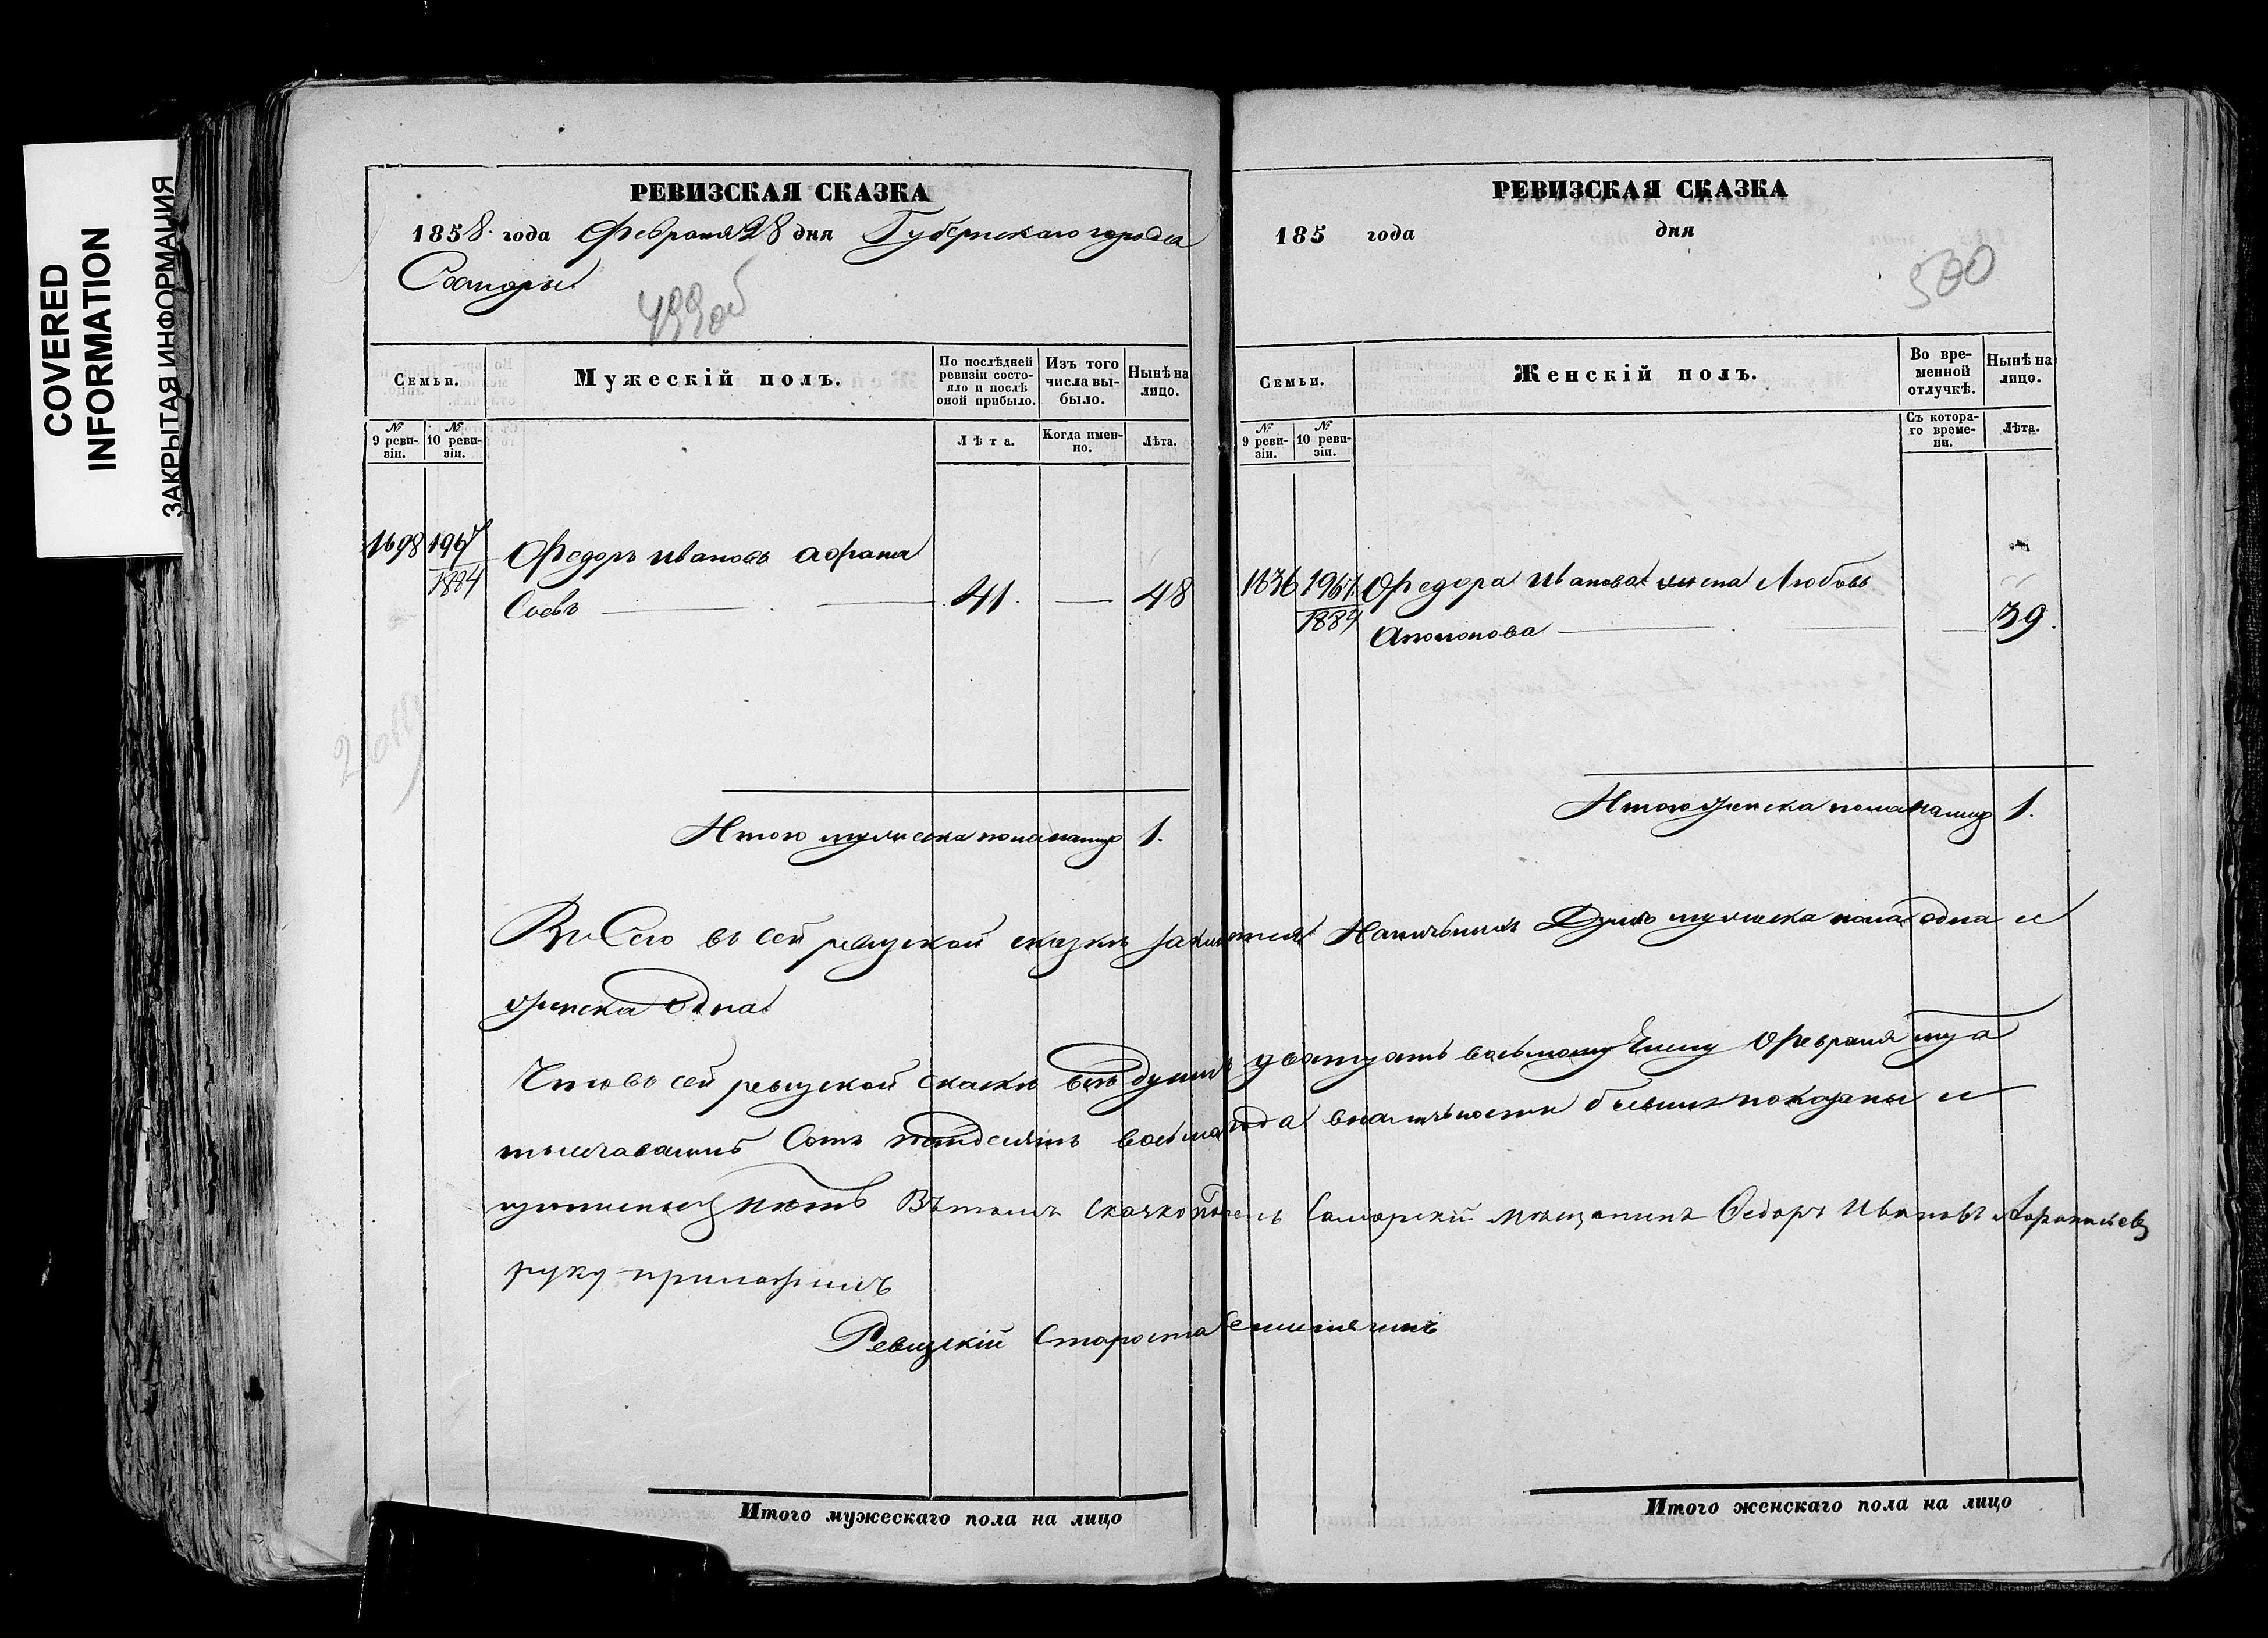 COVERED
INFORMATION
ЗАКРЫТАЯ ИНФОРМАЦИЯ
РЕВИЗСКАЯ СКАЗКА
1858. года Февраля 28 дня Губернскаго города
Самары
499 об
Семьи.
Мужескій полъ.
По послѣдней ревизіи состояло и послѣ оной прибыло.
Изъ того числа выбыло.
Нынѣ на лицо.
№ 9 ревизіи.
№ 10 ревизіи.
Лѣта.
Когда именно.
Лѣта.
1698 1967 Федоръ Ивановъ
1884
41. — 48
Итого мужеска пола налицо 1.
РЕВИЗСКАЯ СКАЗКА
185 года дня
500
Семьи.
Женскій полъ.
Во временной отлучкѣ.
Нынѣ на лицо.
№ 9 ревизіи.
№ 10 ревизіи.
Съ котораго времени.
Лѣта.
1636 1967. Федора Иванова жена Любовь
1884 — 39.
Итого женска пола налицо 1.
Всего въ сей ревизской сказкѣ Наличныхъ Душъ мужеска пола одна и
женска Одна
Что въ сей ревизской скаскѣ всѣ души дватцать восьмому числу Февраля
Сотъ восьма года бывшихъ показаны и
Въ томъ Самарскій мѣщанинъ Федоръ Ивановъ
руку приложилъ
Ревизскій Староста
Итого мужескаго пола на лицо
Итого женскаго пола на лицо